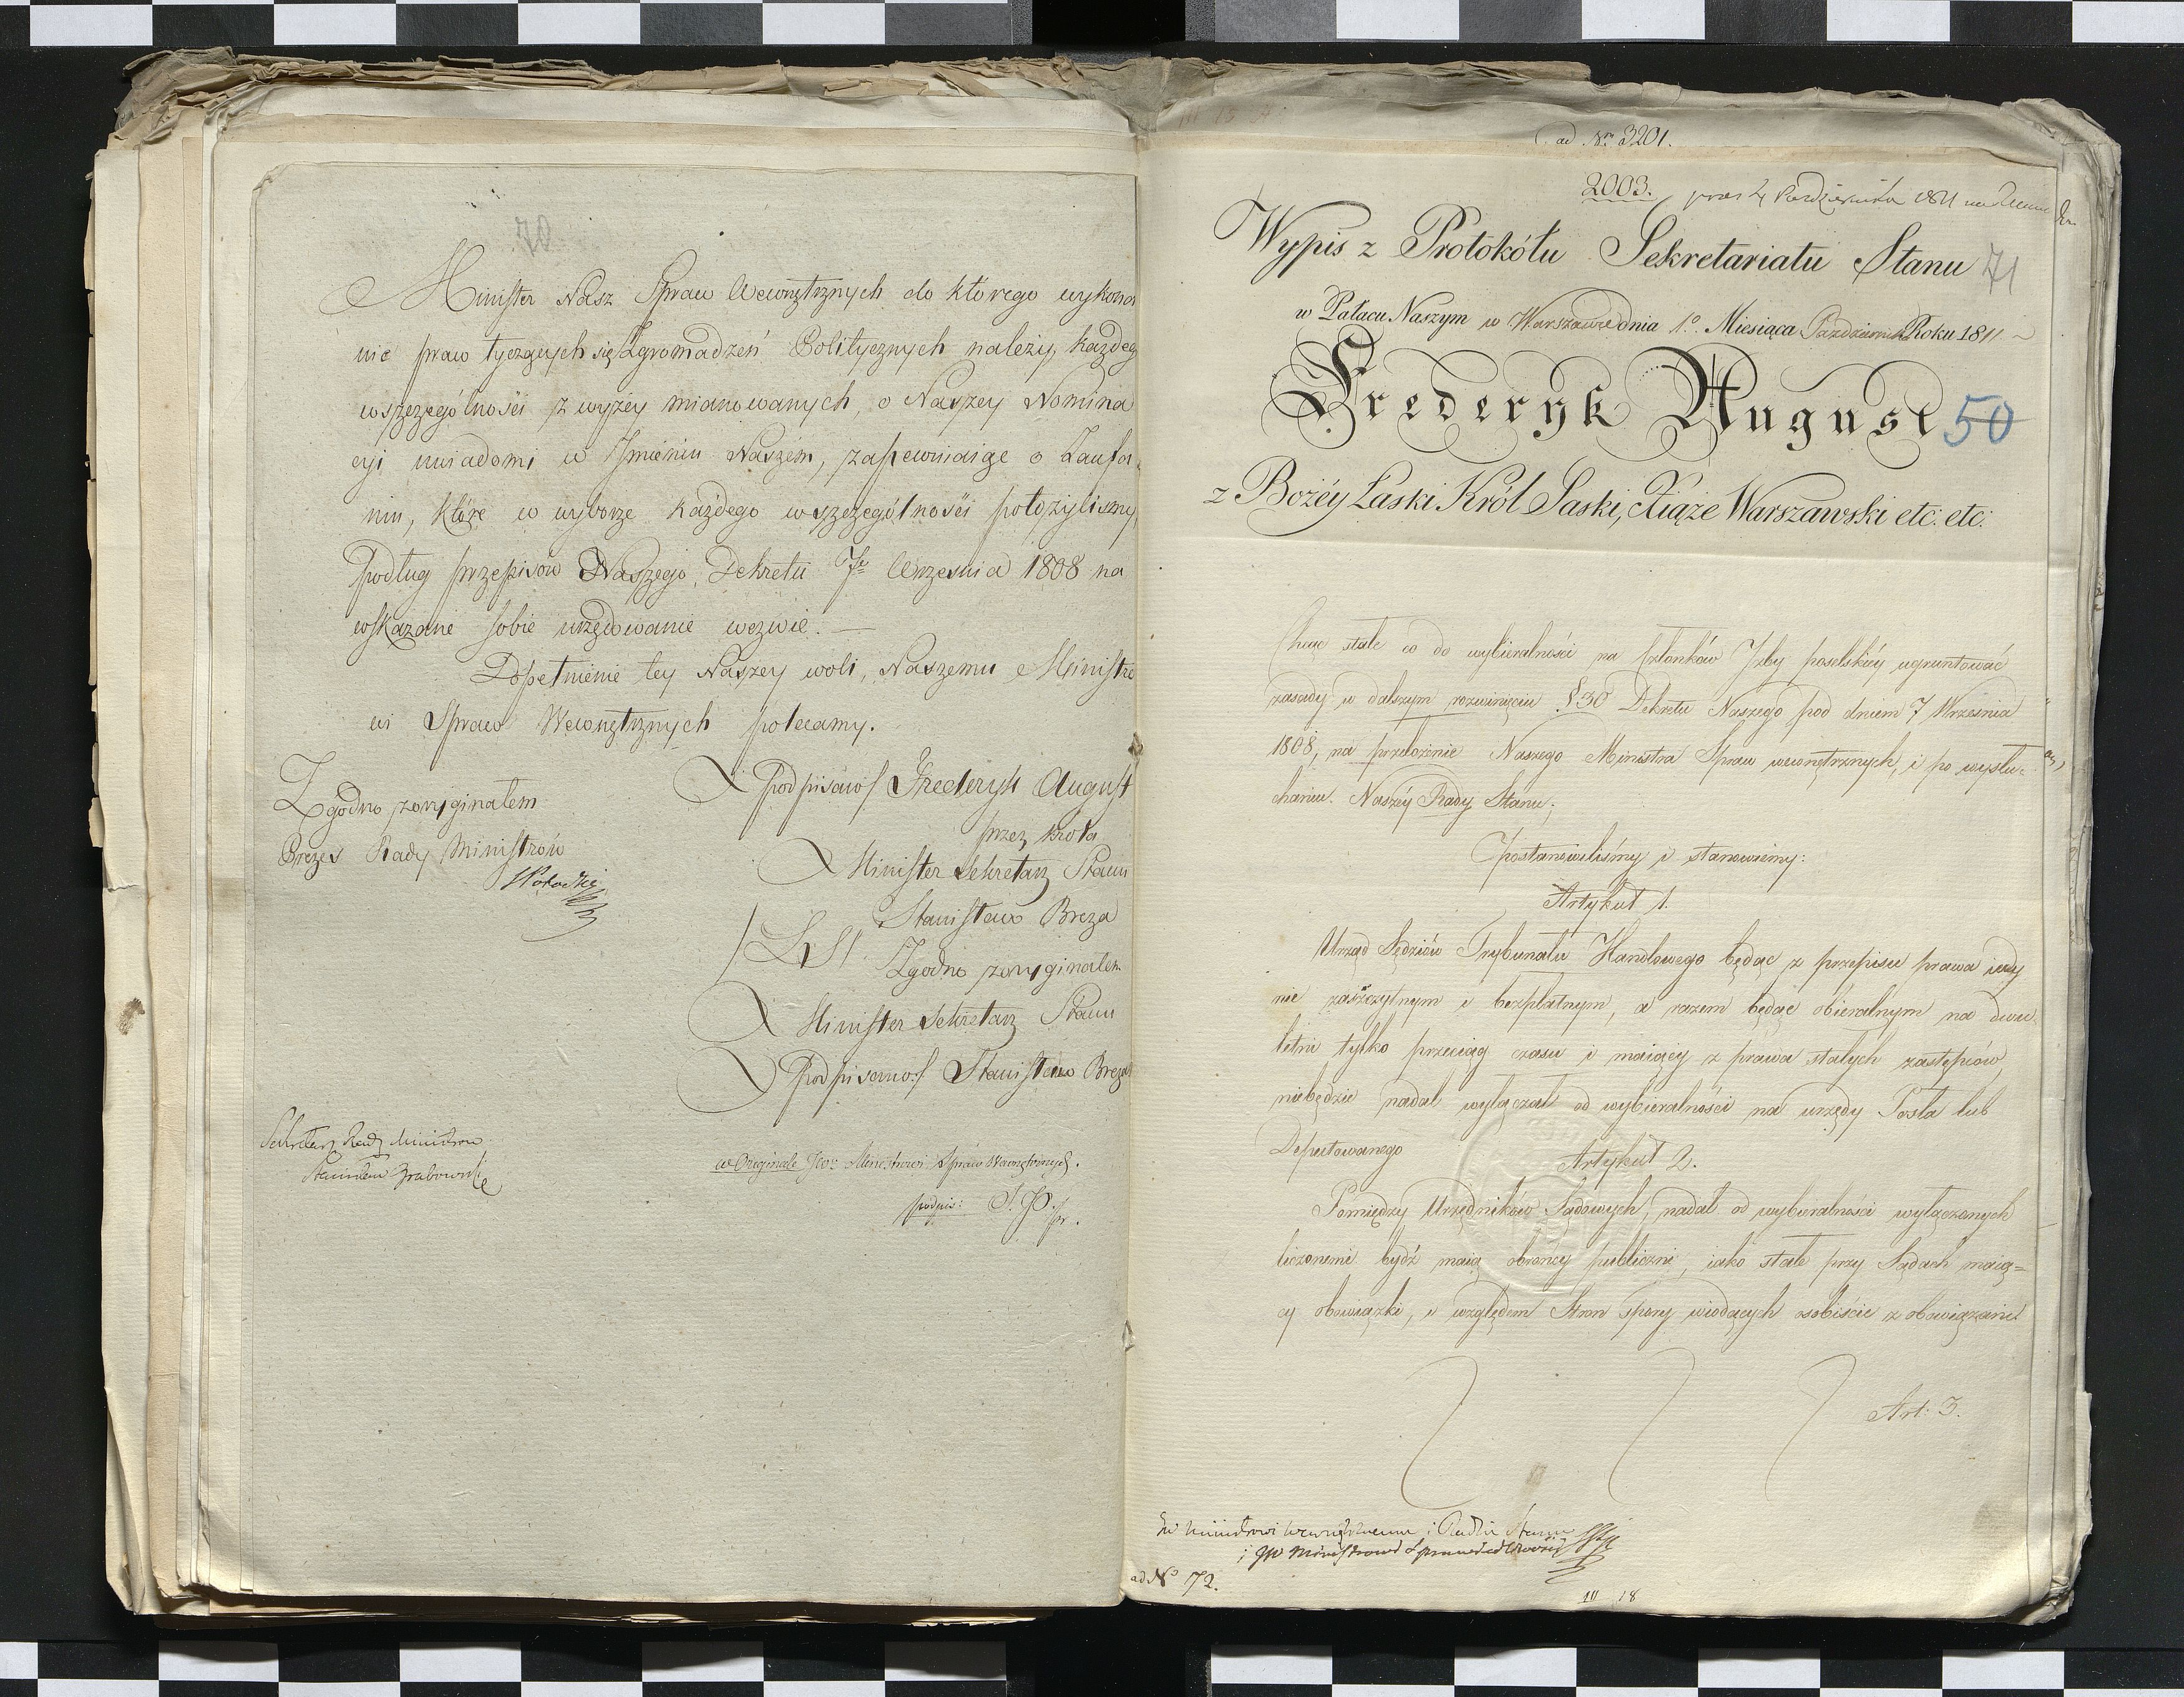 70
Minister Nasz Spraw Wewnętrznych do którego wykona
nie praw tyczących się Zgromadzeń Politycznych należy, każdeg
wszczególności z wyżey mianowanych, o Naszey Nomina
cyi uwiadomi w Imieniu Naszém, zapewniaiąc o Zaufa
niu, które w wyborze każdego wszczególności położyliśmy,
Podług przepisów Naszego Dekretu 7go Września 1808 na
wskazane sobie urzędowanie wezwie. —
Dopełnienie tey Naszey woli, Naszemu Ministro
wi Spraw Wewnętrznych polecamy.
Podpisano/ Frederyk August
przez Króla
Minister Sekretarz Stanu
Stanisław Breza
/LS/.
Zgodno z oryginałem
Minister Sekretarz Stanu
Podpisano:/ Stanisław Breza
Zgodno z oryginałem
Prezes Rady Ministrów
SPotocki
Sekretarz Rady Ministrów
Stanisław Grabowski
w Oryginale JWu Ministrowi Spraw Wewnętrznych.
podpis: S. P. pr.
ad Nrm 3201.
2003. praes 4 Października 1811
Wypis z Protokółu Sekretariatu Stanu
71
w Pałacu Naszym w Warszawie dnia 1o. Miesiąca Października Roku 1811
Frederyk August
50
z Bożéy Łaski Król Saski, Xiąże Warszawski etc: etc:
Chcąc stale co do wybieralności na Członków Izby poselskiéy ugruntować
zasady w dalszym rozwinięciu § 30 Dekretu Naszego pod dniem 7 Września
1808, na przełożenie Naszego Ministra Spraw wewnętrznych, i po wysłu-
chaniu Naszéy Rady Stanu;
Postanowiliśmy i stanowiemy:
Artykuł 1.
Urząd Sędziów Trybunału Handlowego będąc z przepisu prawa iedy
nie zaszczytnym i bezpłatnym, a razem będąc obieralnym na dwu
letni tylko przeciąg czasu i maiący z prawa stałych zastępców,
niebędzie nadal wyłączał od wybieralności na urzędy Posła lub
Deputowanego
Artykuł 2.
Pomiędzy Urzędników Sądowych, nadal od wybieralności wyłączonych
liczonemi bydź maią obrońcy publiczni, iako stałe przy Sądach maią=
cy obowiązki, i względem Stron spory wiodących osobiście z obowiązani
Art: 3.
JW Ministrowi Wewnętrznemu i Radzie Stanu
i JW Ministrowi Sprawiedliwości
ad No 72.
10 18